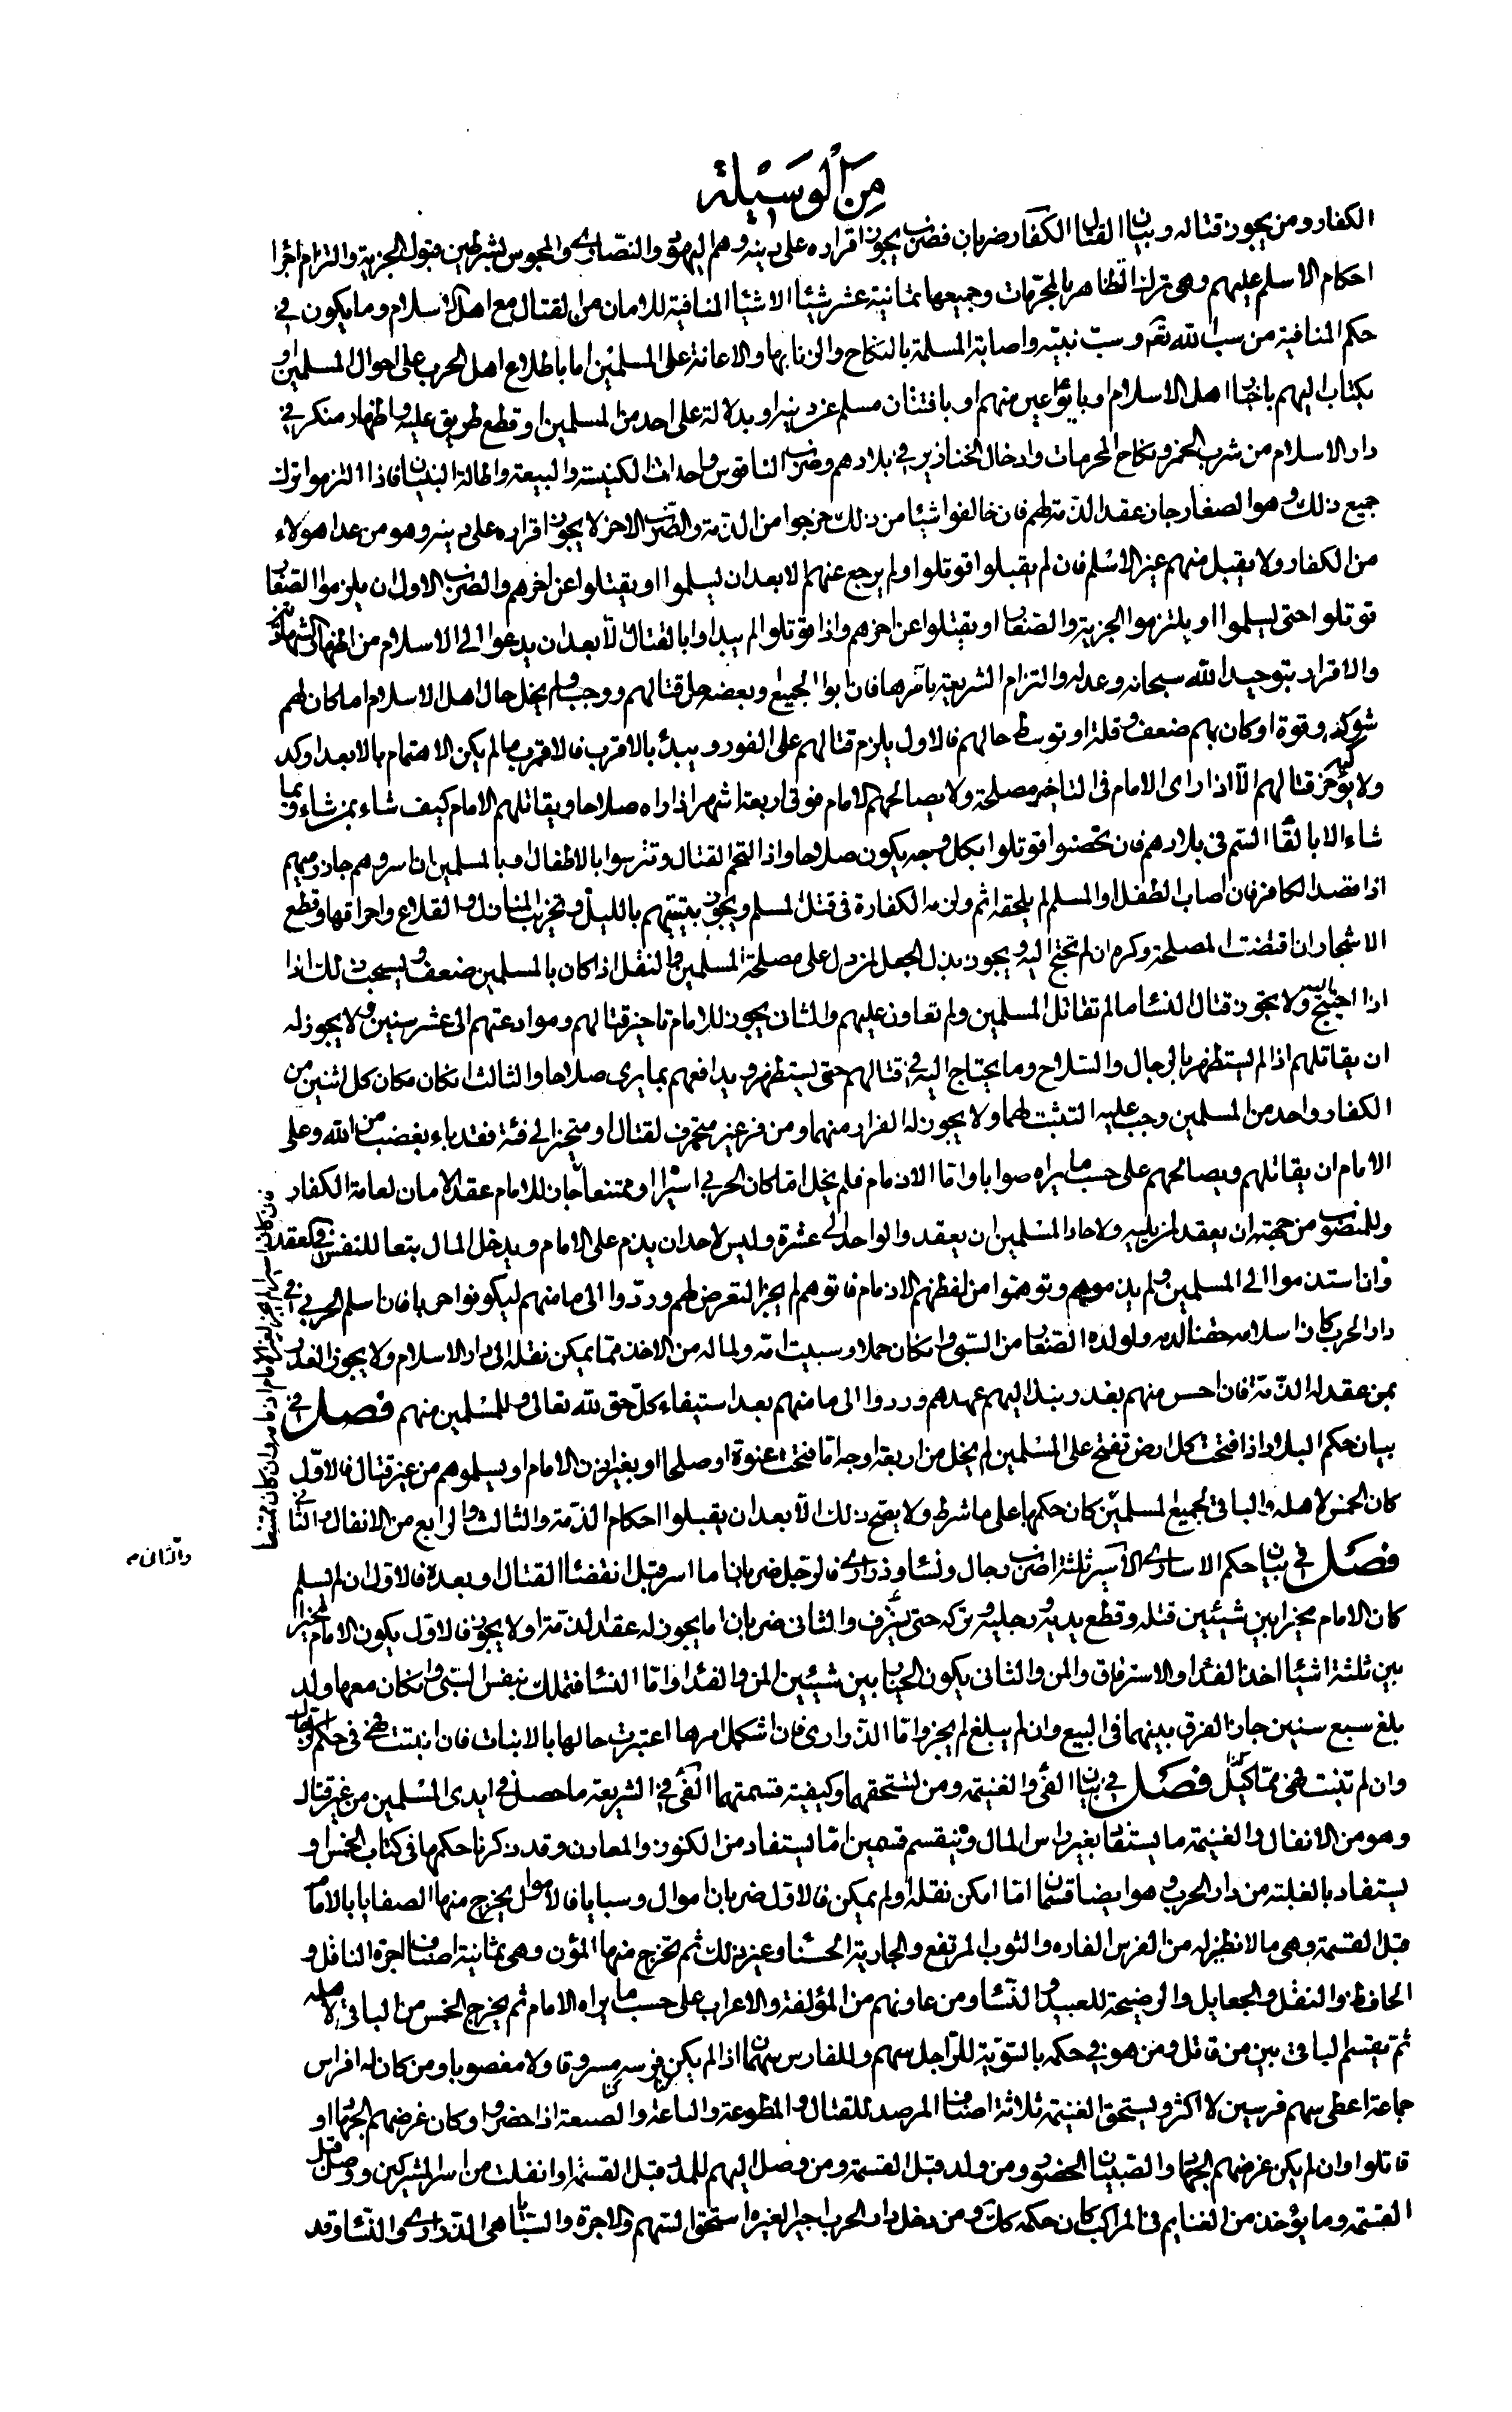 من الوسيلة
الكفار ومن يجوز قتاله وبيان القتال الكفار ضربان فضرب يجوز اقراره على دينه وهم اليهود والنصارى والمجوس بشرطين قبول الجزية والتزام اجراء
احكام الاسلم عليهم وهى ترك التظاهر بالمحرمات وجميعها ثمانية عشر شيئا الاشياء المنافية للامان من القتال مع اهل الاسلام وما يكون في
حكم المنافية من سب الله تعم وسب نبيه واصابة المسلمة بالنكاح والزنا بها والاعانة على المسلمين اما باطلاع اهل الحرب على احوال المسلمين او
بكتاب اليهم باخبار اهل الاسلام او بايواء عين منهم او بافتتان مسلم عن دينه او بدلالة على احد من المسلمين او قطع طريق عليه واظهار منكر في
دار الاسلام من شرب الخمر ونكاح المحرمات وادخال الخنازير في بلادهم وضرب الناقوس واحداث الكنيسة والبيعة واطالة البنيان فاذا التزموا ترك
جميع ذلك وهو الصغار جاز عقد الذمة لهم فان خالفوا شيئا من ذلك خرجوا من الذمة والضرب الاخر لا يجوز اقراره على دينه وهو من عدا هولاء
من الكفار ولا يقبل منهم غير الاسلم فان لم يقبلوا قوتلوا ولم يرجع عنهم الا بعد ان يسلموا او يقتلوا عن اخرهم والضرب الاول ان يلزموا الصغار
قوتلوا حتى يسلموا او يلتزموا الجزية والصغار او يقتلوا عن اخرهم واذا قوتلوا لم يبداوا بالقتال الا بعد ان يدعوا الى الاسلام من اظهار الشهادتين
والاقرار بتوحيد الله سبحانه وعدله والتزام الشريعة بامرها فان ابوا الجميع وبعضه حل قتالهم ووجب ولم يخل حال اهل الاسلام اما كان لهم
شوكة وقوة او كان بهم ضعف وقلة او توسط حالهم فالاول يلزم قتالهم على الفور ويبدء بالاقرب فالاقرب ما لم يكن الاهتمام بالابعد اوكد
ولا يؤخر قتالهم الا اذا راى الامام فى التاخير مصلحة ولا يصالحهم الامام فوق اربعة اشهر اذا راه صلاحا ويقاتلهم الامام كيف شاء بمن شاء وبما
شاء الا بالقاء السم فى بلادهم فان تحصنوا قوتلوا بكل وجه يكون صلاحا واذا التحم القتال وتترسوا بالاطفال وبالمسلمين ان اسروهم جاز رميهم
اذا قصد الكافر فان اصاب الطفل او المسلم لم يلحقه اثم ولزمه الكفارة فى قتل المسلم ويجوز تبييتهم بالليل وتخريب المنازل والقلاع واحراقها وقطع
الاشجار ان اقتضت المصلحة وكره ان لم تحتج اليه ويجوز بذل الجعل لمن دل على مصلحة المسلمين والنفل اذا كان بالمسلمين ضعف ويستحب ذلك اذا
اذا احتيج اليه ولا يجوز قتال النساء ما لم تقاتل المسلمين ولم تعاون عليهم والثانى يجوز للامام تاخير قتالهم وموادعتهم الى عشر سنين ولا يجوز له
ان يقاتلهم اذا لم يستظهر بالرجال والسلاح وما يحتاج اليه في قتالهم حتى يستظهر ويدافعهم بما يرى صلاحا والثالث ان كان مكان كل اثنين من
الكفار واحد من المسلمين وجب عليه التثبت لهما ولا يجوز له الفرار منهما ومن فر غير متحرف لقتال او متحيز الى فئة فقد باء بغضب من الله وعلى
الامام ان يقاتلهم ويصالحهم على حسب ما يراه صوابا واما الاذمام فلم يخل اما كان الحربى اسيرا او ممتنعا جاز للامام عقد الامان لعامة الكفار
وللمنصوب من جهته ان يعقد لمن يليه ولاحاد المسلمين ان يعقد والواحد الى عشرة وليس لاحد ان يذم على الامام ويدخل المال تبعا للنفس في العقد
وان استذموا الى المسلمين ولم يذموهم وتوهموا من لفظهم الاذمام فاتوهم لم يجز التعرض لهم وردوا الى مامنهم ليكونوا حربا فان اسلم الحربى في
دار الحرب كان اسلامه حقنا لدمه ولولده الصغار من السبى وان كان حملا وسبيت امه ولماله من الاخذ مما يمكن نقله الى دار الاسلام ولا يجوز الغدر
بمن عقد له الذمة فان احس منهم بغدر نبذ اليهم عهدهم وردوا الى مامنهم بعد استيفاء كل حق لله تعالى وللمسلمين منهم فصل في
بيان حكم البلاد اذا فتحت كل ارض تفتح على المسلمين لم يخل من اربعة اوجه اما فتحت عنوة او صلحا او بغير اذن الامام او يسلموهم من غير قتال فالاول
كان الخمس لاهله والباقى لجميع المسلمين كان حكمها على ما شرط ولا يصح ذلك الا بعد ان يقبلوا احكام الذمة والثالث والرابع من الانفال والثانى
فصل في بيان حكم الاسارى الاسير ثلثة اضرب رجال ونساء وذرارى فالرجل ضربان اما اسر قبل انقضاء القتال او بعده فالاول ان لم يسلم
كان الامام مخيرا بين شيئين قتله وقطع يديه ورجليه وتركه حتى ينزف والثانى ضربان اما يجوز له عقد الذمة او لا يجوز فالاول يكون الامام مخيرا
بين ثلثة اشياء اخذ الفداء والاسترقاق والمن والثانى يكون الخيار بين شيئين المن والفداء واما النساء فتملك بنفس السبى وان كان معها ولد
بلغ سبع سنين جاز الفرق بينهما فى البيع وان لم يبلغ لم يجز واما الذرارى فان اشكل امرها اعتبرت حالها بالانبات فان انبتت فهى فى حكم الرجال
وان لم تنبت فهى مماليك فصل في بيان الفئ والغنيمة ومن يستحقهما وكيفية قسمتهما الفئ في الشريعة ما حصل في ايدى المسلمين من غير قتال
وهو من الانفال والغنيمة ما يستفاد بغير راس المال وينقسم قسمين اما يستفاد من الكنوز والمعادن وقد ذكرنا حكمها فى كتاب الخمس او
يستفاد بالغلبة من دار الحرب وهو ايضا قسمان اما امكن نقله او لم يمكن فالاول ضربان اموال وسبايا فالاموال يخرج منها الصفايا بالامام
قبل القسمة وهى ما لا نظير له من الفرس الفاره والثوب المرتفع والجارية الحسناء وغير ذلك ثم تخرج منها المؤن وهى ثمانية اصناف اجرة الناقل و
الحافظ والنفل والجعايل والرضيحة للعبيد والنساء ومن عاونهم من المؤلفة والاعراب على حسب ما يراه الامام ثم يخرج الخمس من الباقى لاهله
ثم يقسم الباقى بين من قاتل ومن هو في حكمه بالسوية للراجل سهم وللفارس سهمان اذا لم يكن فرسه مسروقا ولا مغصوبا ومن كان له افراس
جماعة اعطى سهم فرسين لا اكثر ويستحق الغنيمة ثلاثة اصناف المرصد للقتال والمطوعة والباعة والصنعة اذا حضروا وكان غرضهم الجهاد او
قاتلوا وان لم يكن غرضهم الجهاد والصبيان الحضور ومن ولد قبل القسمة ومن وصل اليهم للمدد قبل القسمة او انفلت من اسر المشركين ووصل قبل
القسمة وما يؤخذ من الغنايم فى المراكب كان حكمه كك ومن دخل دار الحرب اجيرا لغيره استحق السهم والاجرة والسبايا هى الذرارى والنساء وقد
فان كان اسيرا لم يجز لغير الامام اذمامه وان كان ممتنعا
والثانى م